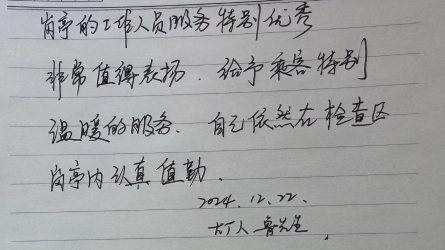 岗亭的工作人员服务特别优秀
非常值得表扬．给予乘客特别
温暖的服务．自己依然在检查区
岗亭内认真值勤．
2024.12.22.
大丁人 鲁先生．